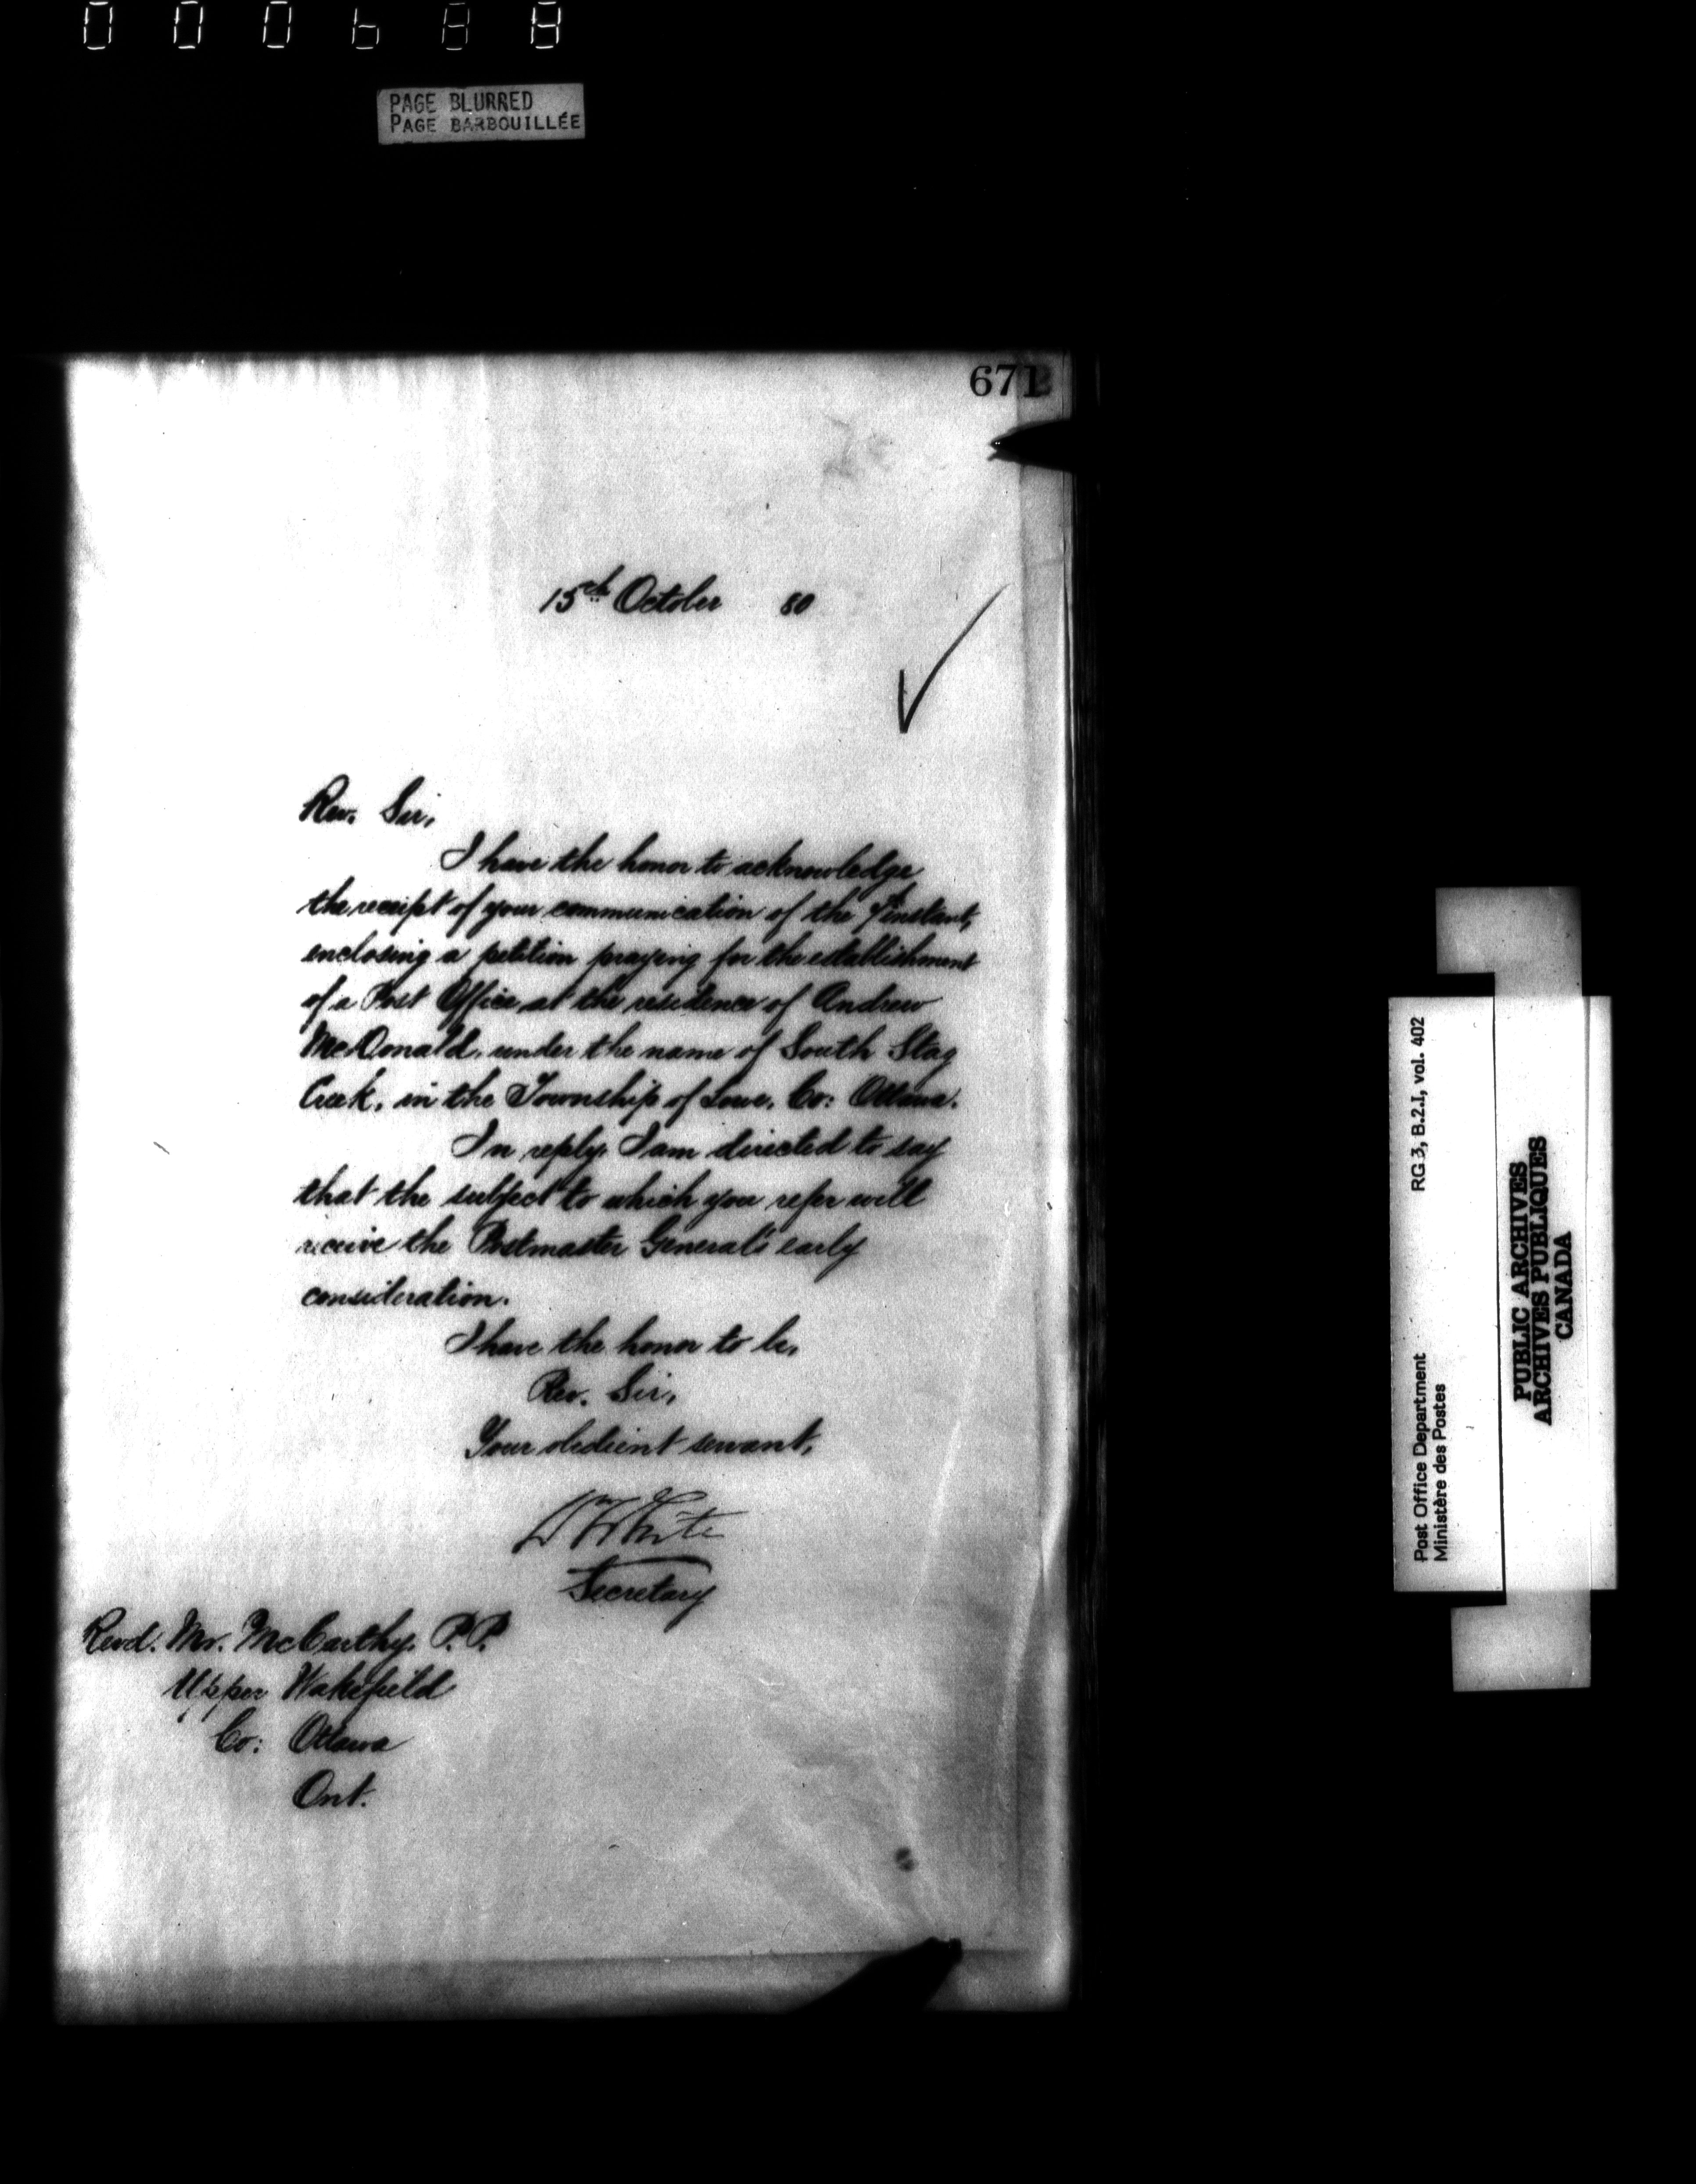 000688
PAGE BLURRED
PAGE BARBOUILLÉE
671
15th October 80
Rev. Sir,
I have the honor to acknowledge
the receipt of your communication of the 7th instant,
enclosing a petition praying for the establishment
of a Post Office at the residence of Andrew
McDonald, under the name of South Stag
Creek, in the Township of Lowe, Co: Ottawa.
In reply, I am directed to say
that the subject to which you refer will
receive the Postmaster General's early
consideration.
I have the honor to be,
Rev. Sir,
Your obedient servant,
Wm White
Secretary
Revd. Mr. McCarthy. P.P.
Upper Wakefield
Co: Ottawa
Ont.
Post Office Department RG 3, B.2.I, vol. 402
Ministère des Postes
PUBLIC ARCHIVES
ARCHIVES PUBLIQUES
CANADA